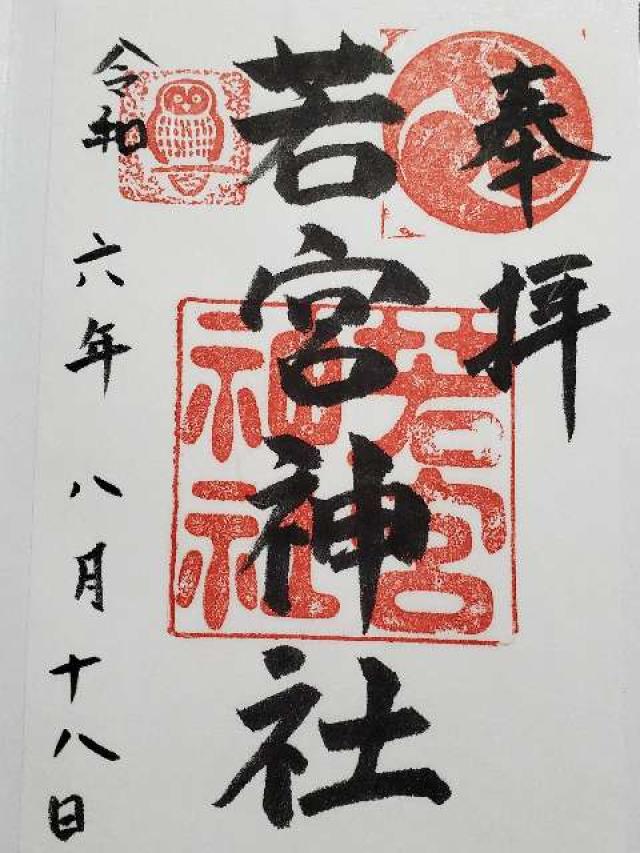 奉拝
若宮神社
若宮
神社
令和六年八月十八日